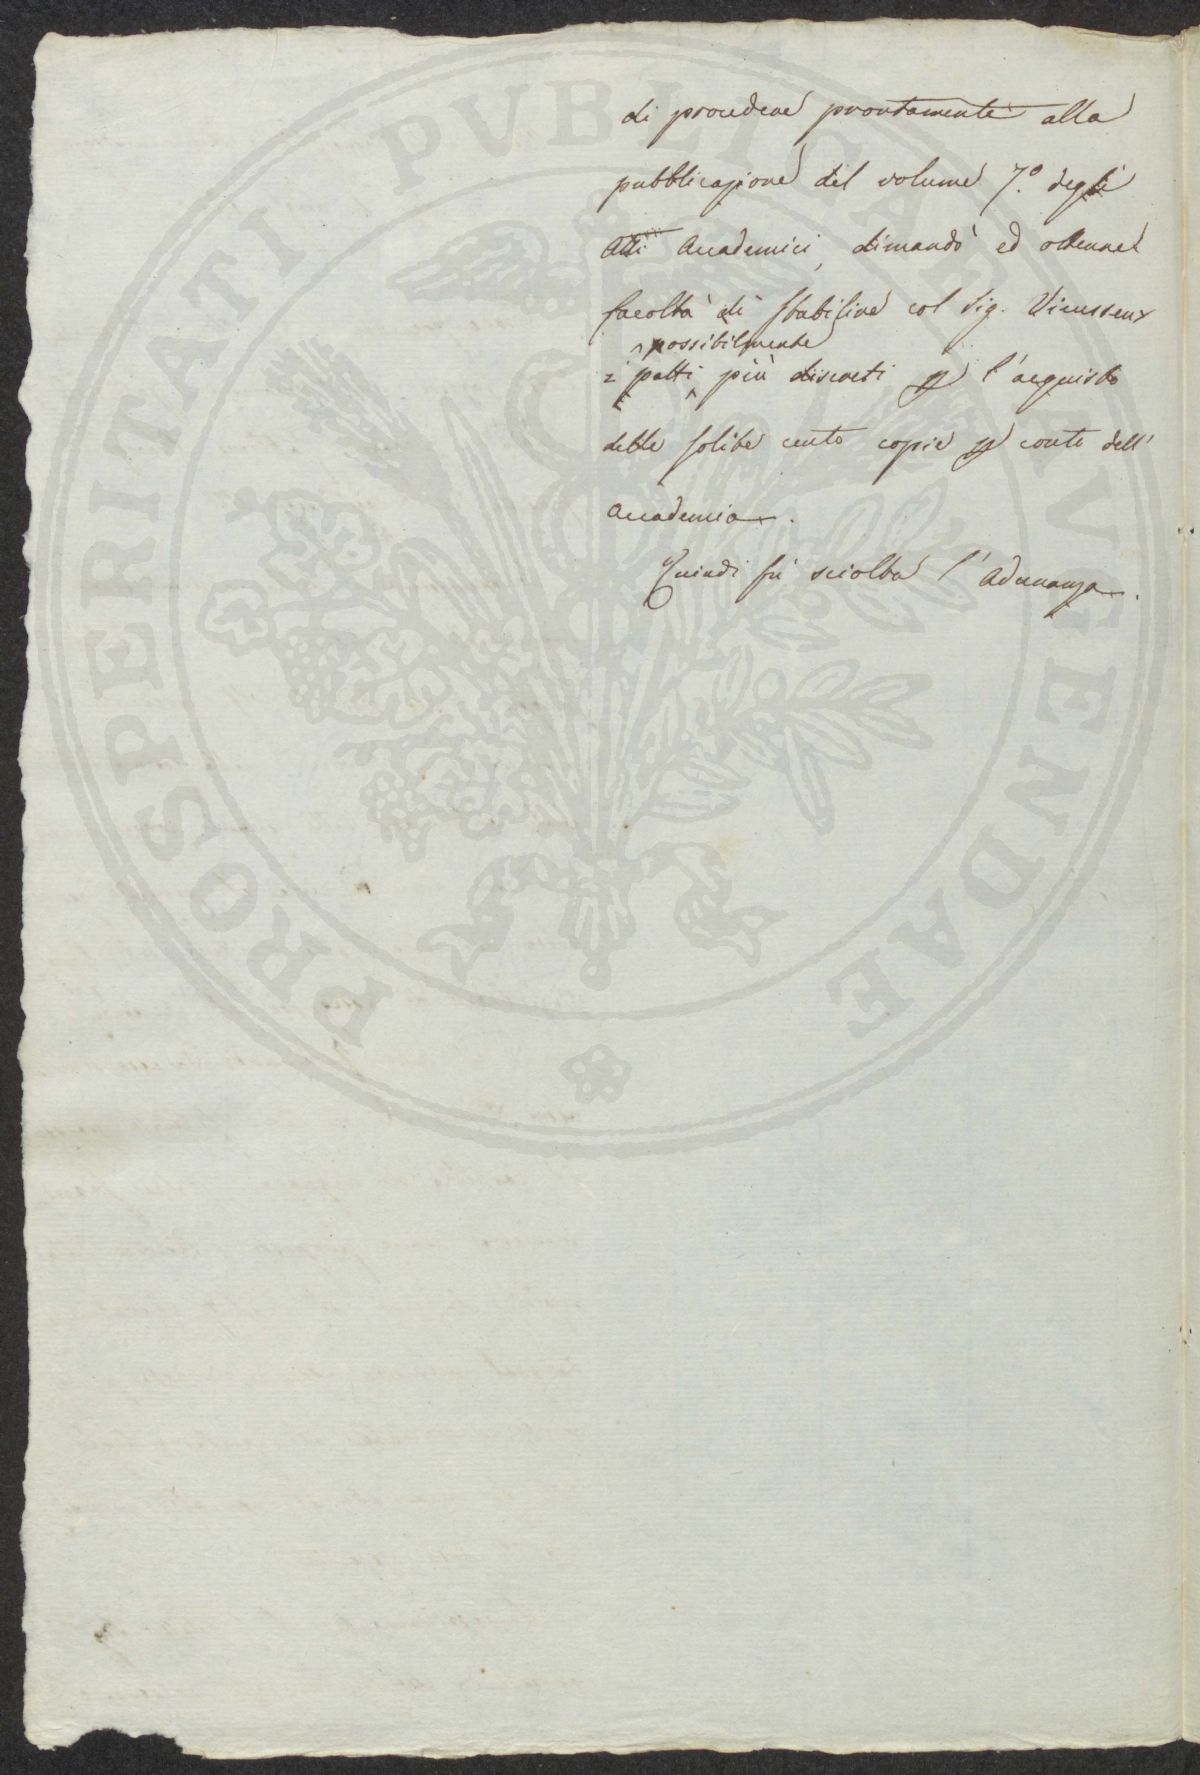 PROSPERITATI PVBLICAE AVGENDAE
di procedere prontamente alla
pubblicazione del volume 7.º degli
Atti Accademici, dimandò ed ottenne
facoltà di stabilire col Sig. Vieusseux
possibilmente
i patti più discreti p l'acquisto
delle solite cento copie p conto dell'
Accademia.
Quindi fù sciolta l'Adunanza.